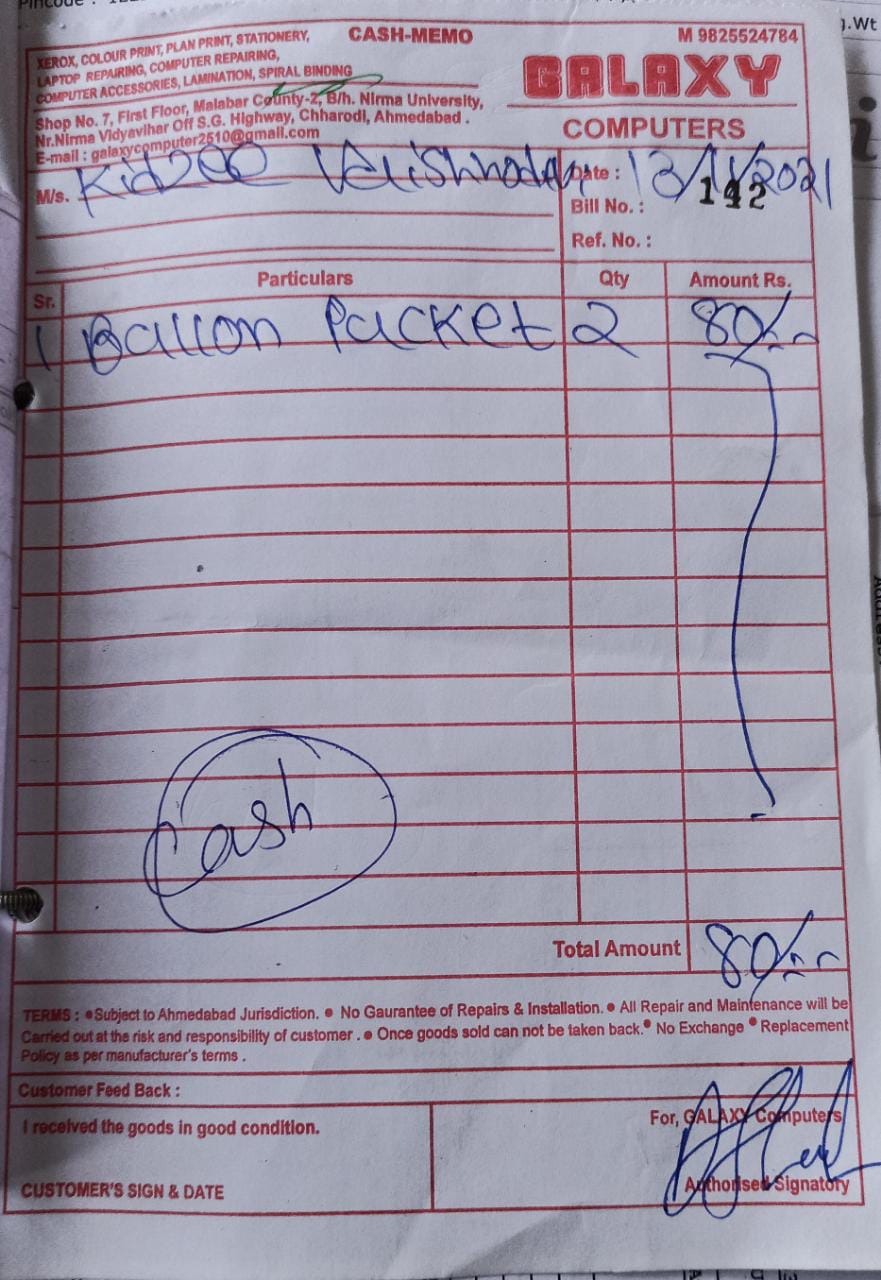 XEROX, COLOUR PRINT, PLAN PRINT, STATIONERY,
LAPTOP REPAIRING, COMPUTER REPAIRING,
COMPUTER ACCESSORIES, LAMINATION, SPIRAL BINDING
CASH-MEMO
M 9825524784
GALAXY
COMPUTERS
Shop No. 7, First Floor, Malabar County-2, B/h. Nirma University,
Nr.Nirma Vidyavihar Off S.G. Highway, Chharodi, Ahmedabad .
E-mail : galaxycomputer2510@gmail.com
M/s. Kidzee
Date : 13/11/2021
Bill No. : 142
Ref. No. :
Sr. Particulars Qty Amount Rs.
1 Ballon Packet 2 80/--
Cash
Total Amount 80/--
TERMS : •Subject to Ahmedabad Jurisdiction. • No Gaurantee of Repairs & Installation. • All Repair and Maintenance will be
Carried out at the risk and responsibility of customer . • Once goods sold can not be taken back.• No Exchange • Replacement
Policy as per manufacturer's terms .
Customer Feed Back :
I received the goods in good condition.
For, GALAXY Computers
CUSTOMER'S SIGN & DATE
Authorised Signatory